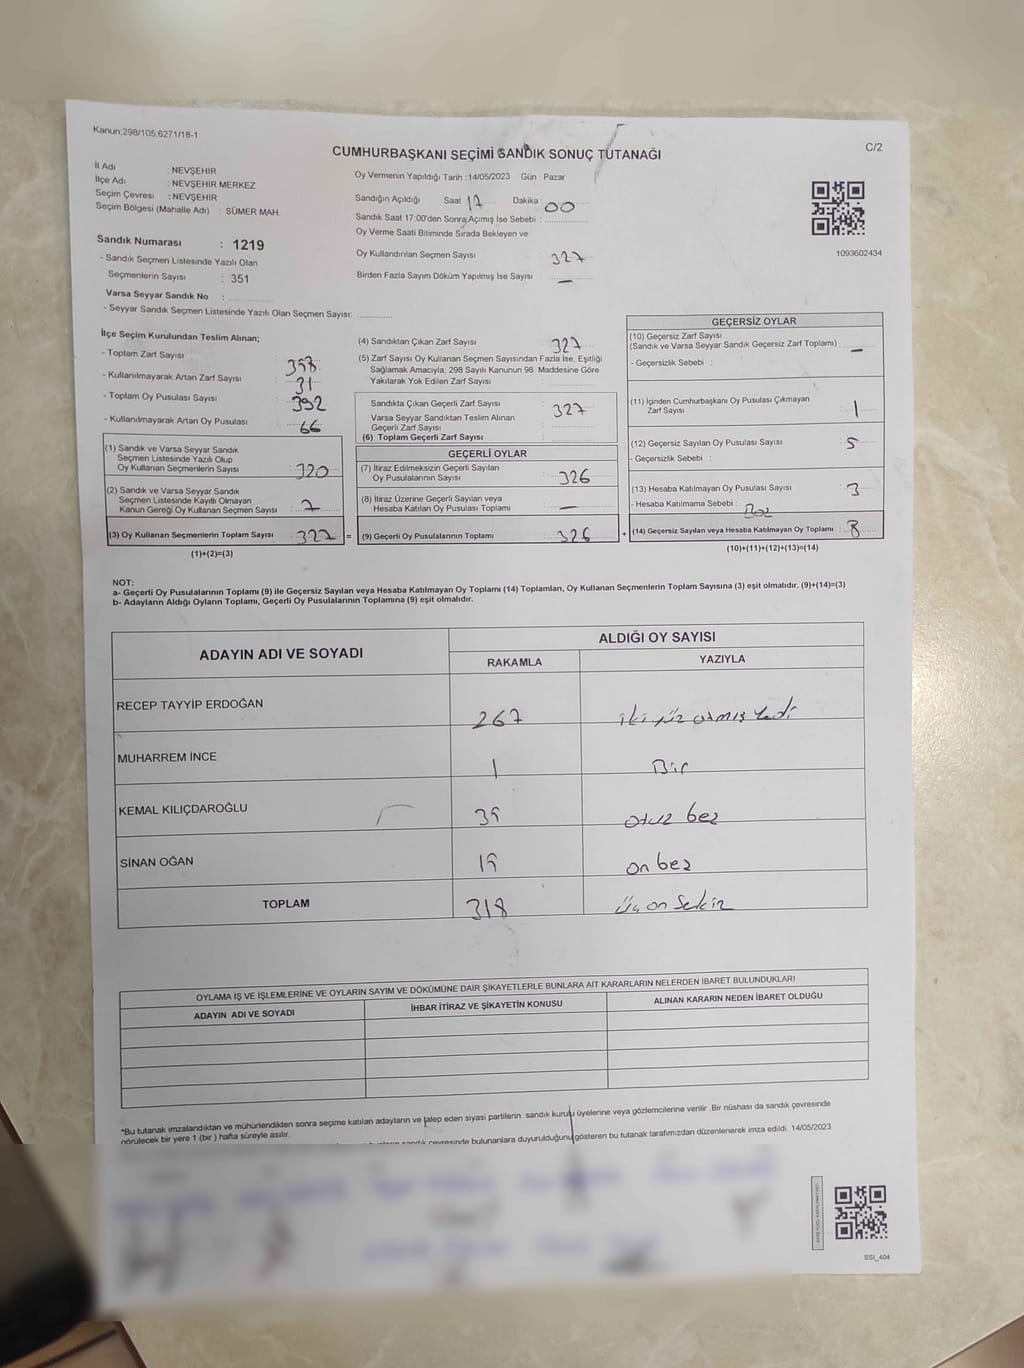 Kanun:298/105;6271/18-1
C/2
CUMHURBAŞKANI SEÇİMİ SANDIK SONUÇ TUTANAĞI
İl Adı : NEVŞEHİR
İlçe Adı : NEVŞEHİR MERKEZ
Seçim Çevresi : NEVŞEHİR
Seçim Bölgesi (Mahalle Adı) : SÜMER MAH.
Oy Vermenin Yapıldığı Tarih :14/05/2023 Gün : Pazar
Sandığın Açıldığı Saat 17 Dakika : 00
Sandık Saat 17:00'den Sonra Açımış İse Sebebi :
Oy Verme Saati Bitiminde Sırada Bekleyen ve
Oy Kullandırılan Seçmen Sayısı : 327
Birden Fazla Sayım Döküm Yapılmış İse Sayısı : —
1093602434
Sandık Numarası : 1219
- Sandık Seçmen Listesinde Yazılı Olan
Seçmenlerin Sayısı : 351
Varsa Seyyar Sandık No :
- Seyyar Sandık Seçmen Listesinde Yazılı Olan Seçmen Sayısı:
İlçe Seçim Kurulundan Teslim Alınan;
- Toplam Zarf Sayısı : 358
- Kullanılmayarak Artan Zarf Sayısı : 31
- Toplam Oy Pusulası Sayısı : 392
- Kullanılmayarak Artan Oy Pusulası : 66
(1) Sandık ve Varsa Seyyar Sandık
Seçmen Listesinde Yazılı Olup
Oy Kullanan Seçmenlerin Sayısı : 320
(2) Sandık ve Varsa Seyyar Sandık
Seçmen Listesinde Kayıtlı Olmayan
Kanun Gereği Oy Kullanan Seçmen Sayısı : 7
(3) Oy Kullanan Seçmenlerin Toplam Sayısı : 327 =
(1)+(2)=(3)
(4) Sandıktan Çıkan Zarf Sayısı : 327
(5) Zarf Sayısı Oy Kullanan Seçmen Sayısından Fazla İse, Eşitliği
Sağlamak Amacıyla; 298 Sayılı Kanunun 98. Maddesine Göre
Yakılarak Yok Edilen Zarf Sayısı :
Sandıkta Çıkan Geçerli Zarf Sayısı : 327
Varsa Seyyar Sandıktan Teslim Alınan
Geçerli Zarf Sayısı :
(6) Toplam Geçerli Zarf Sayısı :
GEÇERLİ OYLAR
(7) İtiraz Edilmeksizin Geçerli Sayılan
Oy Pusulalarının Sayısı : 326
(8) İtiraz Üzerine Geçerli Sayılan veya
Hesaba Katılan Oy Pusulası Toplamı : —
(9) Geçerli Oy Pusulalarının Toplamı : 326 +
GEÇERSİZ OYLAR
(10) Geçersiz Zarf Sayısı
(Sandık ve Varsa Seyyar Sandık Geçersiz Zarf Toplamı) : —
- Geçersizlik Sebebi :
(11) İçinden Cumhurbaşkanı Oy Pusulası Çıkmayan
Zarf Sayısı : 1
(12) Geçersiz Sayılan Oy Pusulası Sayısı : 5
- Geçersizlik Sebebi :
(13) Hesaba Katılmayan Oy Pusulası Sayısı : 3
- Hesaba Katılmama Sebebi : Boş
(14) Geçersiz Sayılan veya Hesaba Katılmayan Oy Toplamı : 8
(10)+(11)+(12)+(13)=(14)
NOT:
a- Geçerli Oy Pusulalarının Toplamı (9) ile Geçersiz Sayılan veya Hesaba Katılmayan Oy Toplamı (14) Toplamları, Oy Kullanan Seçmenlerin Toplam Sayısına (3) eşit olmalıdır. (9)+(14)=(3)
b- Adayların Aldığı Oyların Toplamı, Geçerli Oy Pusulalarının Toplamına (9) eşit olmalıdır.
ADAYIN ADI VE SOYADI
ALDIĞI OY SAYISI
RAKAMLA YAZIYLA
RECEP TAYYİP ERDOĞAN 267 iki yüz atmış Yedi
MUHARREM İNCE 1 Bir
KEMAL KILIÇDAROĞLU 35 otuz beş
SİNAN OĞAN 15 on beş
TOPLAM 318 Üç on Sekiz
OYLAMA İŞ VE İŞLEMLERİNE VE OYLARIN SAYIM VE DÖKÜMÜNE DAİR ŞİKAYETLERLE BUNLARA AİT KARARLARIN NELERDEN İBARET BULUNDUKLARI
ADAYIN ADI VE SOYADI İHBAR İTİRAZ VE ŞİKAYETİN KONUSU ALINAN KARARIN NEDEN İBARET OLDUĞU
*Bu tutanak imzalandıktan ve mühürlendikten sonra seçime katılan adayların ve talep eden siyasi partilerin sandık kurulu üyelerine veya gözlemcilerine verilir. Bir nüshası da sandık çevresinde
görülecek bir yere 1 (bir ) hafta süreyle asılır.
çevresinde bulunanlara duyurulduğunu gösteren bu tutanak tarafımızdan düzenlenerek imza edildi. 14/05/2023
SSI_404